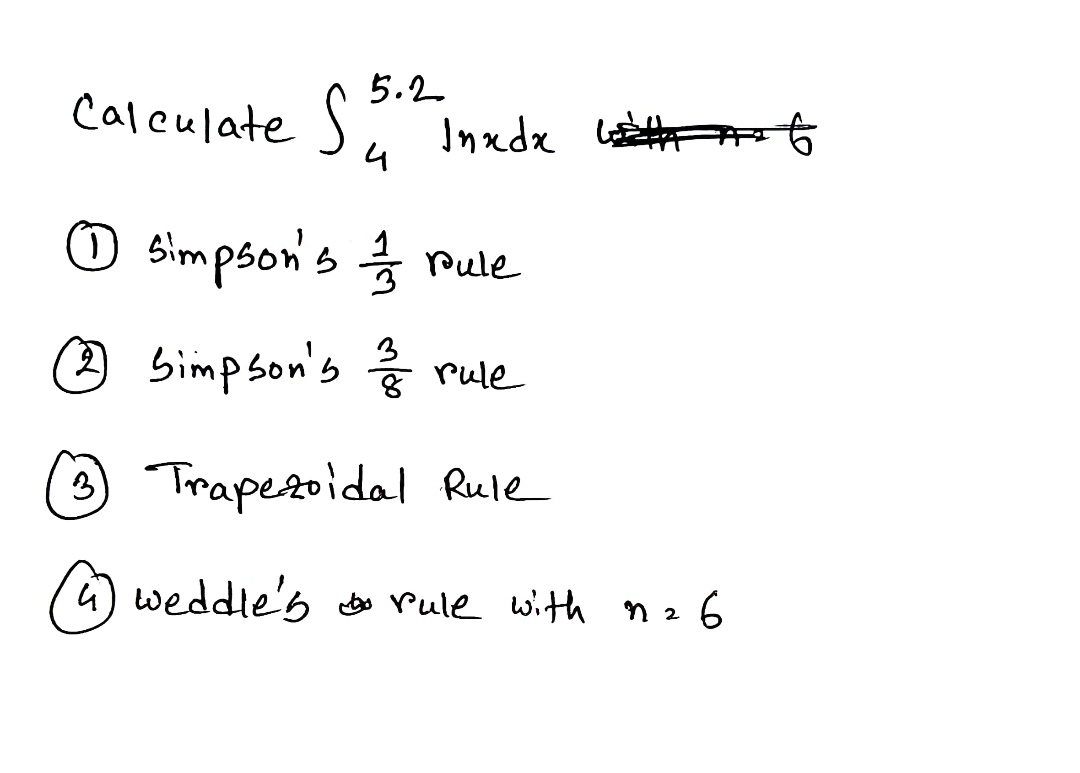 Calculate ∫₄^5.2 lnxdx with n=6
① Simpson's 1/3 rule
② Simpson's 3/8 rule
③ Trapezoidal Rule
④ Weddle's rule with n=6